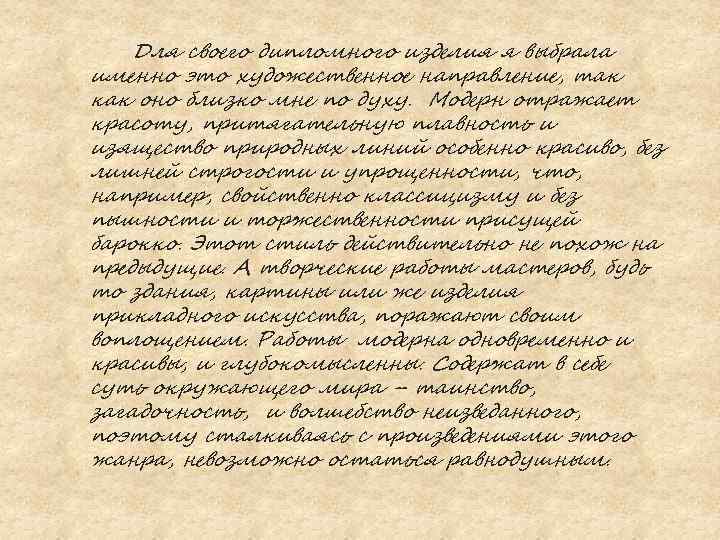 Для своего дипломного изделия я выбрала
именно это художественное направление, так
как оно близко мне по духу. Модерн отражает
красоту, притягательную плавность и
изящество природных линий особенно красиво, без
лишней строгости и упрощенности, что,
например, свойственно классицизму и без
пышности и торжественности присущей
барокко. Этот стиль действительно не похож на
предыдущие. А творческие работы мастеров, будь
то здания, картины или же изделия
прикладного искусства, поражают своим
воплощением. Работы модерна одновременно и
красивы, и глубокомысленны. Содержат в себе
суть окружающего мира – таинство,
загадочность, и волшебство неизведанного,
поэтому сталкиваясь с произведениями этого
жанра, невозможно остаться равнодушным.